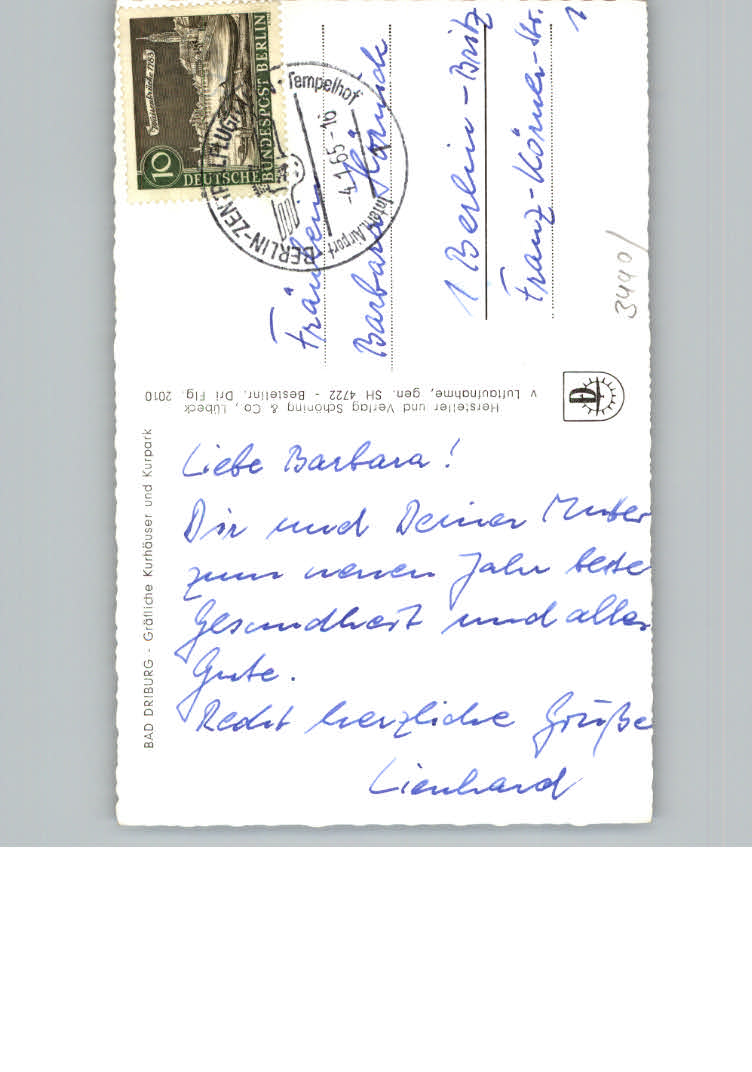 Liebe Barbara!
Dir und Deiner Mutter
zum neuen Jahr beste
Gesundheit und alles
Gute.
Recht herzliche Grüße
Lienhard
Fräulein
Barbara
1 Berlin-Britz
Franz-Körner-Str.
1
3440/
BAD DRIBURG - Gräfliche Kurhäuser und Kurpark
Hersteller und Verlag Schöning & Co., Lübeck
v Luftaufnahme, gen. SH 4722 - Bestellnr. Dri Flg. 2010
D
10
DEUTSCHE BUNDESPOST BERLIN
1763
BERLIN-ZENTRALFLUGH
Tempelhof
Intern. Airport
-4.1.65-16